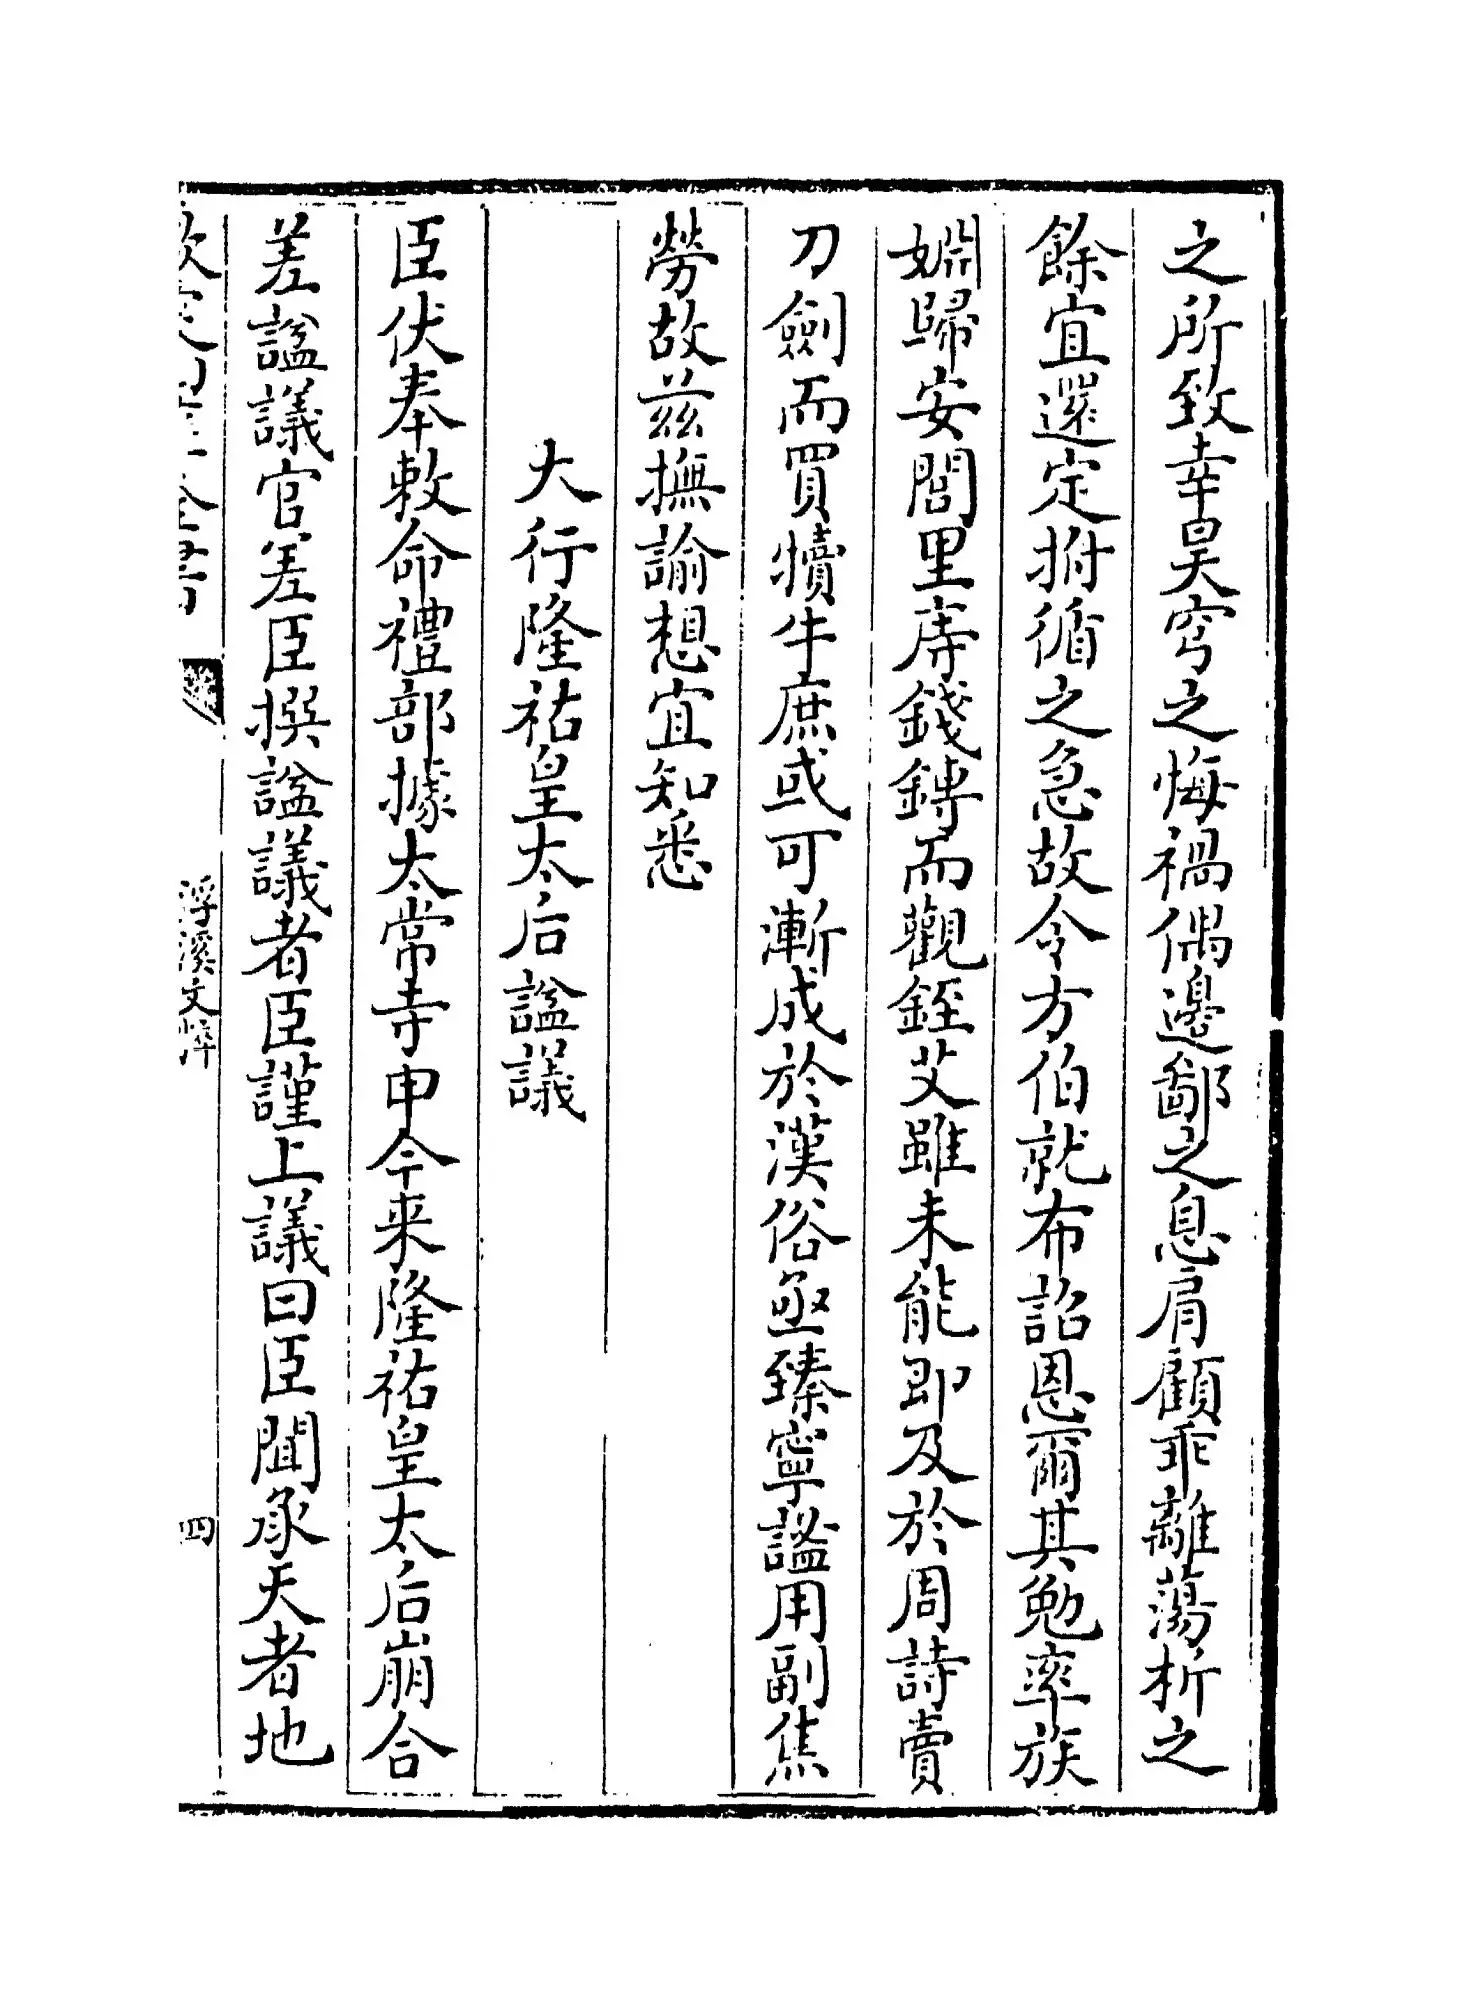 之所致幸昊穹之悔禍偶邊鄙之息肩顧乖離蕩析之
餘宜還定拊循之急故令方伯就布詔恩爾其勉率族
婣歸安閭里庤錢鎛而觀銍艾雖未能即及於周詩賣
刀劍而買犢牛庶或可漸成於漢俗亟臻寧謐用副焦
勞故茲撫諭想宜知悉
大行隆祐皇太后諡議
臣伏奉敕命禮部據太常寺申今来隆祐皇太后崩合
差諡議官差臣撰諡議者臣謹上議曰臣聞承天者地
欽定四庫全書
浮溪文粹
四